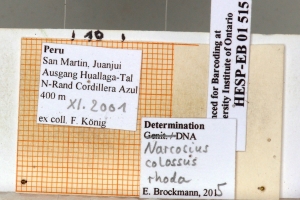 10
Peru
San Martin, Juanjui
Ausgang Huallaga-Tal
N-Rand Cordillera Azul
400 m
XI. 2001
ex coll. F. König
Determination
Genit. / DNA
Narcosius
colossus
rhoda
E. Brockmann, 2015
for Barcoding at
Institute of Ontario
HESP-EB 01 515